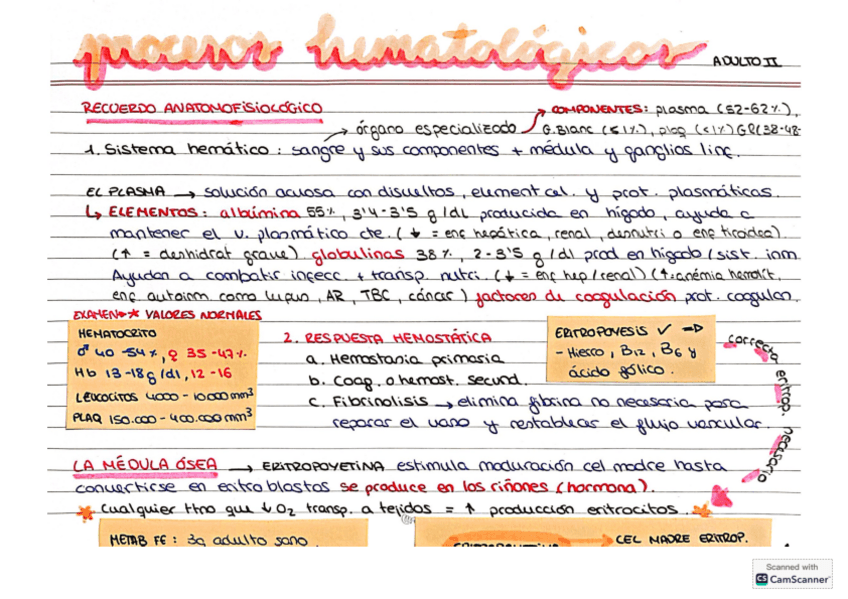 procesos hematológicos ADULTO II
RECUERDO ANATOMOFISIOLÓGICO
COMPONENTES: plasma (52-62%),
→ órgano especializado G.Blanc (≤1%), plaq (<1%) GR(38-48-
1. Sistema hemático: sangre y sus componentes + médula y ganglios linf.
EL PLASMA → solución acuosa con disueltos, element cel. y prot. plasmáticas.
↳ ELEMENTOS: albúmina 55%, 3'4-3'5 g/dl producida en hígado, ayuda a
mantener el v. plasmático cte. (↓ = enf hepática, renal, desnutri o enf tiroidea)
(↑ = deshidrat grave) globulinas 38%, 2-3'5 g/dl prod en hígado/sist. inm
Ayudan a combatir infecc. + transp. nutri. (↓ = enf hep/renal) (↑=anémia hemolít,
enf. autoinm como lupus, AR, TBC, cáncer) factores de coagulación prot. coagulan.
EXAMEN→* VALORES NORMALES
HEMATOCRITO
♂ 40-54%, ♀ 35-47%
Hb 13-18g/dl, 12-16
LEUCOCITOS 4000-10000mm³
PLAQ 150.000-400.000mm³
2. RESPUESTA HEMOSTÁTICA
a. Hemostasia primaria
b. Coag. o hemost. secund.
c. Fibrinolisis → elimina fibrina no necesaria para
reparar el vaso y restablecer el flujo vascular.
ERITROPOYESIS ✓ ⇒
- Hierro, B12, B6 y
ácido fólico.
correcta eritrop necesario
LA MÉDULA ÓSEA → ERITROPOYETINA estimula maduración cel madre hasta
convertirse en eritroblastos se produce en los riñones (hormona).
* Cualquier ttno que ↓O2 transp. a tejidos = ↑ producción eritrocitos. *
METAB FE: 3g adulto sano
ERITROPOYETINA → CEL MADRE ERITROP.
Scanned with
CS CamScanner